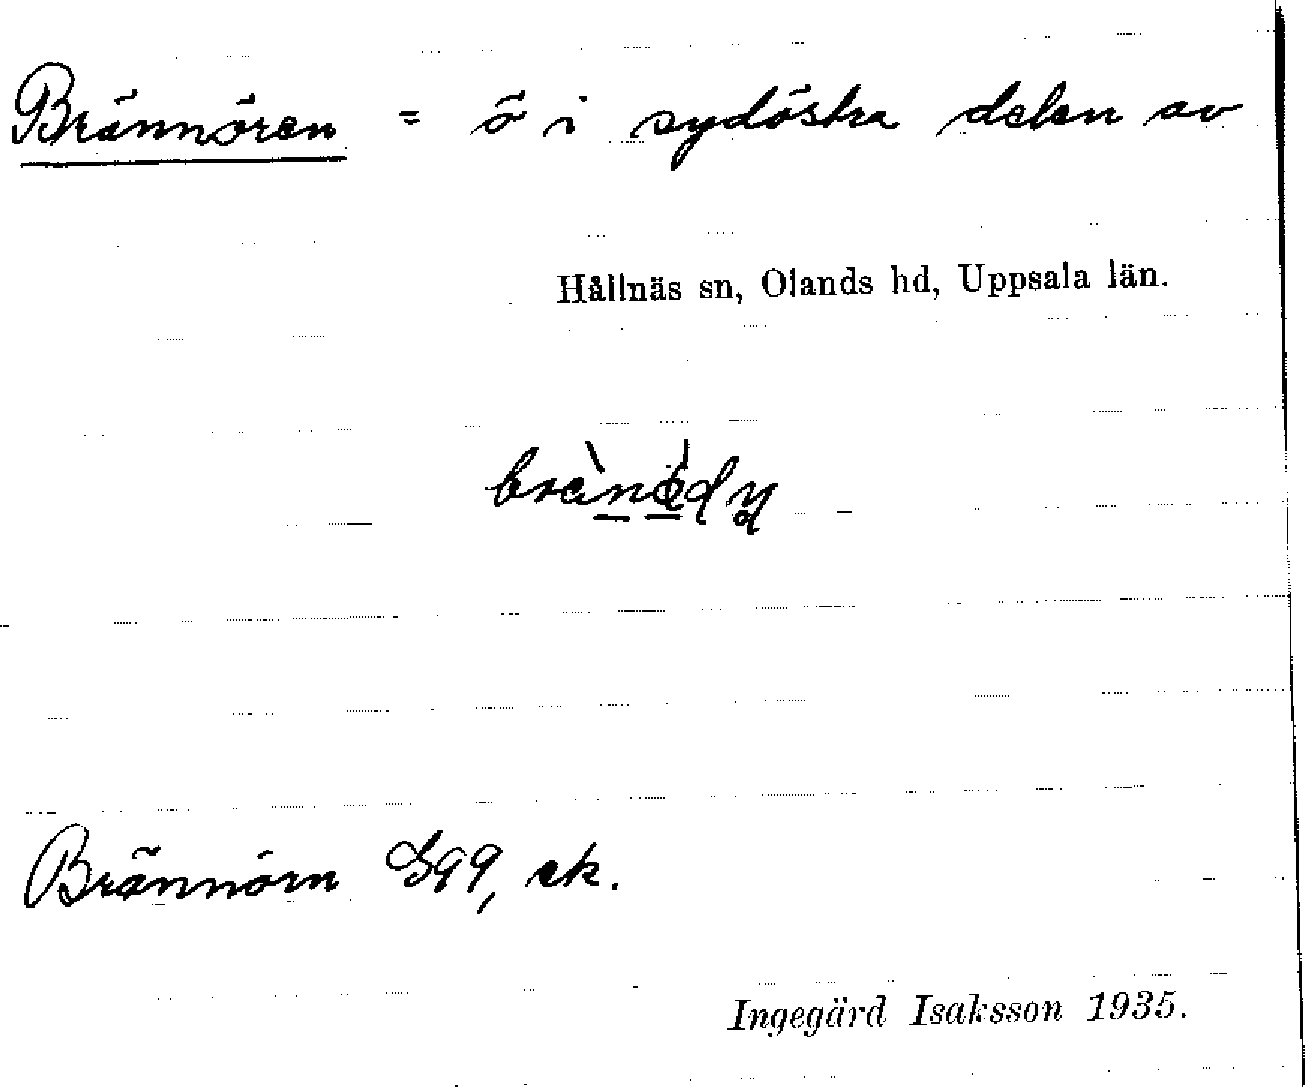 Brännören = ö i sydöstra delen av
Hållnäs sn, Olands hd, Uppsala län.
Brännörn Ggg, ek.
Ingegärd Isaksson 1935.